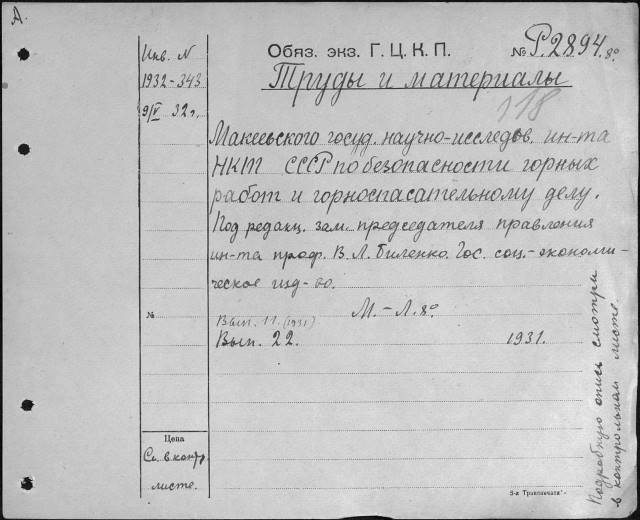 А.
Инв. N
1932-343
9/V 32 г.
Обяз. экз. Г. Ц. К. П.
№ Р.2894. 8º
Труды и материалы
118
Макеевского госуд. научно-исследов. ин-та
НКТ СССР по безопасности горных
работ и горноспасательному делу.
Под редакц. зам. председателя правления
ин-та проф. В. Л. Биленко. Гос. соц.-экономи-
ческое изд-во.
М.-Л. 8º
№
Вып. 11. (1931)
Вып. 22. 1931.
Цена
См. в контр.
листе.
Подробную опись смотри
в контрольном листе.
5-я Транспечати